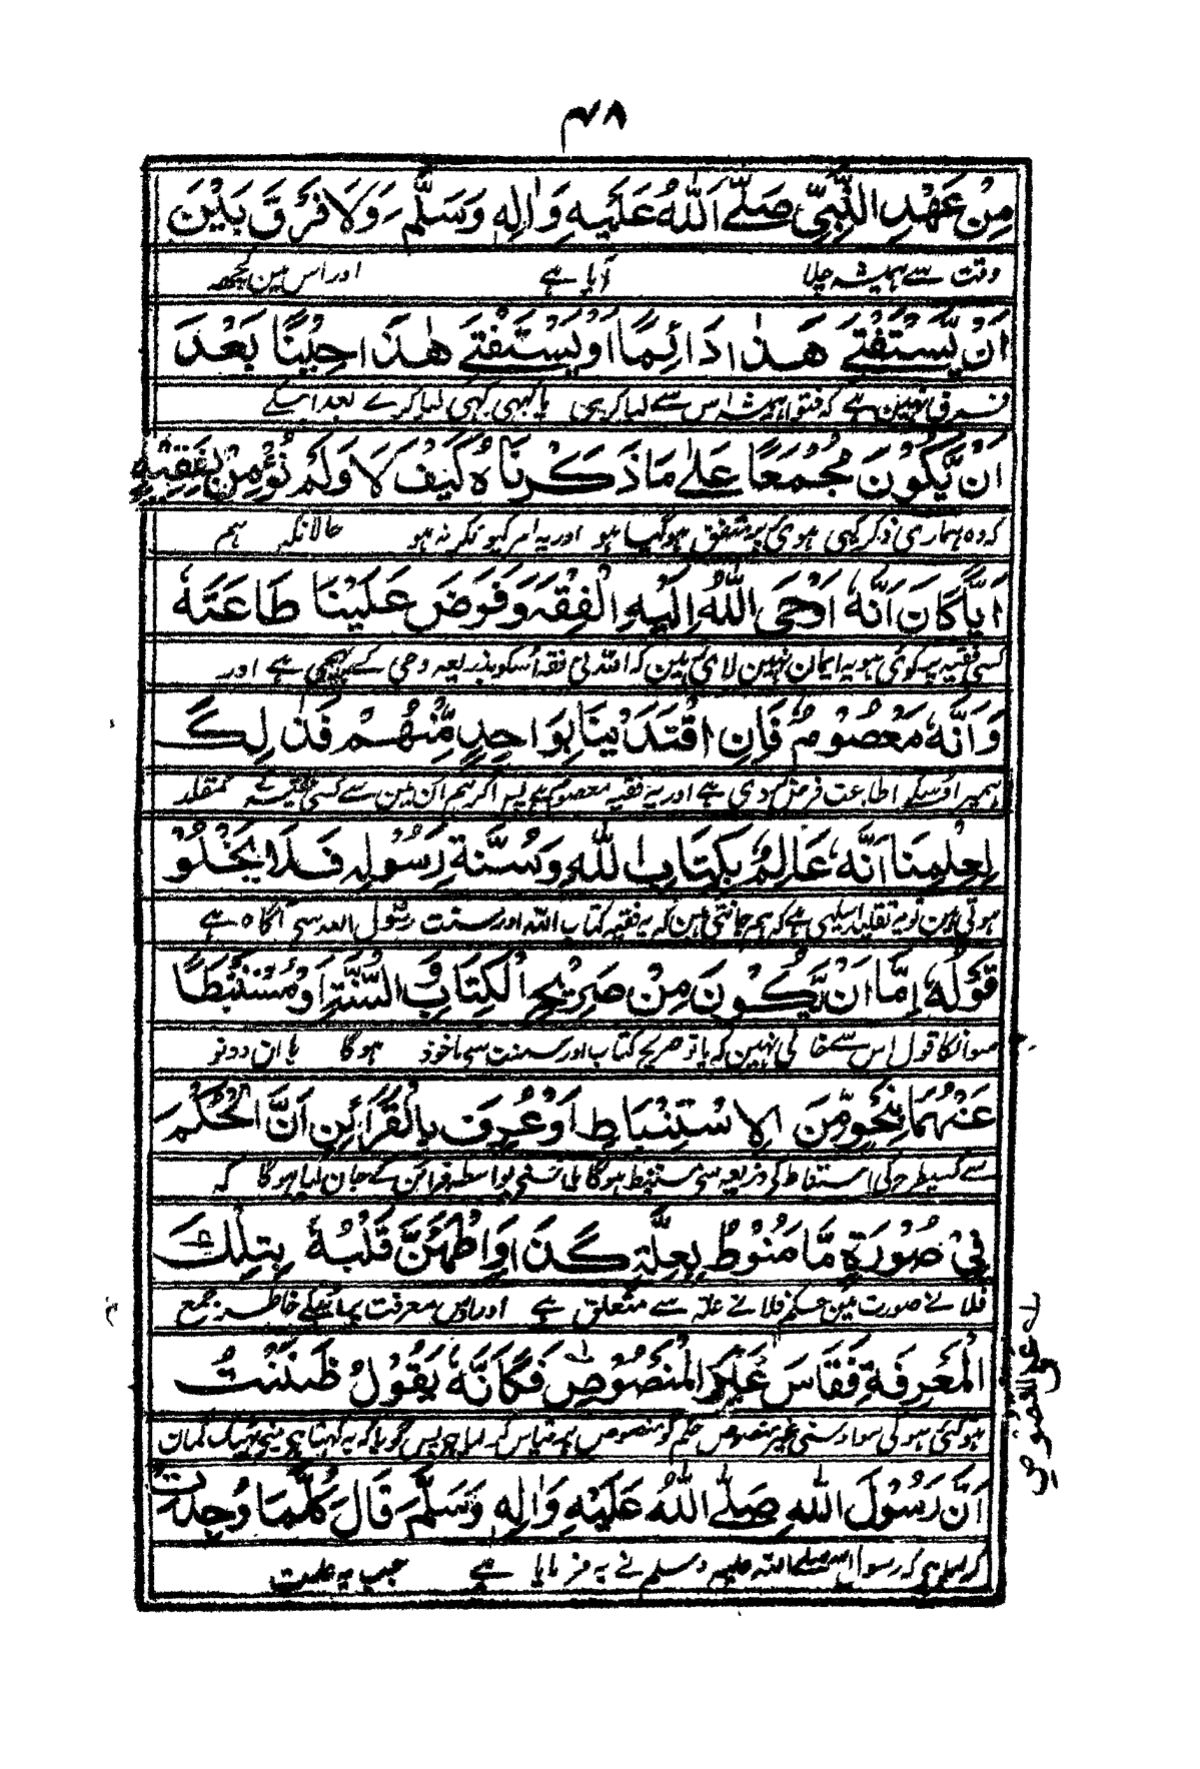 ۴۸
مِنْ عَهْدِ النَّبِيِّ صَلَّے اللهُ عَلَيهِ وَاٰلِهِ وَسَلَّمَ وَلَا فَرَقَ بَيْنَ
وقت سے ہمیشہ چلا آیا ہے اور اس مین کچھہ
اَنْ يَّسْتَفْتَے هٰذَا دَائِمًا اَوْ يَسْتَفْتَے هٰذَا حِيْنًا بَعْدَ
فرق نہین ہے کہ فتوا ہمیشہ اس سے لیا کرے یا کبہی کبہی لیا کرے بعد اسکے
اَنْ يَّكُوْنَ مُجْمَعًا عَلٰے مَا ذَكَرْنَاهُ كَيْفَ لَا وَلَمْ نُؤْمِنْ بِفَقِيْهٍ
کہ وہ ہماری ذکر کہی ہوی پر متفق ہوگیا ہو اور یہ امر کیونکر نہ ہو حالانکہ ہم
اَيًّا كَانَ اَنَّهُ اَوْحَى اللّٰهُ اِلَيْهِ الْفِقْهَ وَفَرَضَ عَلَيْنَا طَاعَتَهُ
کسی فقیہ پر کوئی ہو یہ ایمان نہین لائے ہین کہ اللہ نے فقہ اُسکو بذریعہ وحی کے بہیجی ہے اور
وَاَنَّهُ مَعْصُوْمٌ فَاِنِ اقْتَدَيْنَا بِوَاحِدٍ مِّنْهُمْ فَذٰلِكَ
ہمپر اُسکے اطاعت فرض کردی ہے اور یہ فقیہ معصوم ہے پس اگر ہم ان مین سے کسی فقیہ کے مقلد
لِعِلْمِنَا اَنَّهُ عَالِمٌ بِكِتَابِ اللّٰهِ وَسُنَّةِ رَسُوْلِهِ فَلَا يَخْلُوْ
ہوتے ہین تو یہ تقلید اسلیے ہے کہ ہم جانتی ہین کہ یہ فقیہ کتاب اللہ اور سنت رسول اللہ سی آگاہ ہے
قَوْلُهُ اِمَّا اَنْ يَّكُوْنَ مِنْ صَرِيْحِ الْكِتَابِ وَ السُّنَّةِ اَوْ مُسْتَنْبَطًا
سو انکا قول اس سے خالی نہین کہ یا تو صریح کتاب اور سنت سی ماخوذ ہوگا یا ان دونو
عَنْهُمَا بِنَحْوٍ مِّنَ الِاسْتِنْبَاطِ اَوْ عُرِفَ بِالْقَرَائِنِ اَنَّ الْحُكْمَ
سے کسیطرح کی استنباط کی ذریعہ سی مستنبط ہوگا یا اسنی بواسطہ قرائن کے جان لیا ہوگا کہ
فِيْ صُوْرَةٍ مَّا مَنُوْطٌ بِعِلَّةِ كَذَا وَاطْمَئَنَّ قَلْبُهُ بِتِلْكَ
فلانے صورت مین حکم فلانے علۃ سے متعلق ہے اور اس معرفت پر اسکے خاطر جمع
الْمَعْرِفَةِ فَقَاسَ غَيْرَ الْمَنْصُوْصِ فَكَاَنَّهُ يَقُوْلُ ظَنَنْتُ
ہوگئی ہوگی سو اوسنی غیر منصوص حکم کو منصوص پر قیاس کر لیا پس گویا کہ یہ کہتا ہی مینی گمان
اَنَّ رَسُوْلَ اللّٰهِ صَلَّے اللّٰهُ عَلَيْهِ وَاٰلِهِ وَسَلَّمَ قَالَ كُلَّمَا وُجِدَتْ
کر لیا ہی کہ رسول اللہ صلے اللہ علیہ وسلم نے یہ فرمایا ہے جب یہ علت